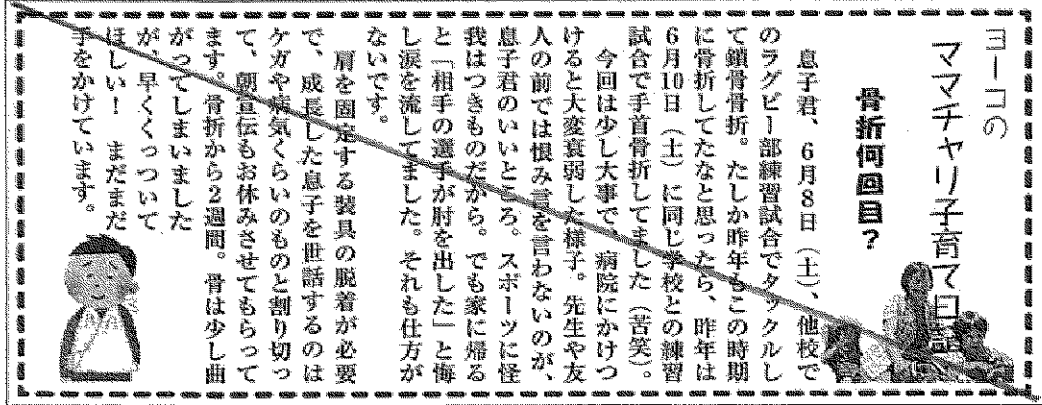 ヨーコの
ママチャリ子育て日誌
骨折何回目？
息子君、6月8日（土）、他校で
のラグビー部練習試合でタックルし
て鎖骨骨折。たしか昨年もこの時期
に骨折してたなと思ったら、昨年は
6月10日（土）に同じ学校との練習
試合で手首骨折してました（苦笑）。
今回は少し大事で、病院にかけつ
けると大変衰弱した様子。先生や友
人の前では恨み言を言わないのが、
息子君のいいところ。スポーツに怪
我はつきものだから。でも家に帰る
と「相手の選手が肘を出した」と悔
し涙を流してました。それも仕方が
ないです。
肩を固定する装具の脱着が必要
で、成長した息子を世話するのは
ケガや病気くらいのものと割り切っ
て、朝宣伝もお休みさせてもらって
ます。骨折から2週間。骨は少し曲
がってしまいました
が、早くくっついて
ほしい！　まだまだ
手をかけています。